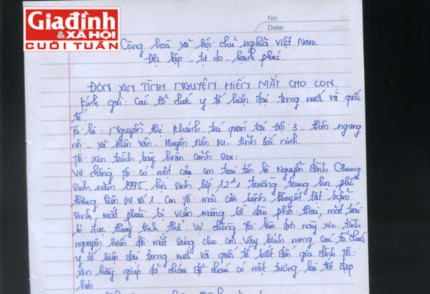 Giađình
& XÃ HỘI
CUỐI TUẦN
No
Date
Cộng hoà xã hội chủ nghĩa Việt Nam.
Độc lập - tự do - hạnh phúc.
ĐƠN XIN TÌNH NGUYỆN HIẾN MẮT CHO CON
Kính gửi: Các tổ chức y tế hiện đại trong nước và quốc
tế
Tôi là: Nguyễn Thị Khánh trú quán tại Đội 3. thôn ngang
nội - xã hiên vân. huyện tiên du. tỉnh bắc ninh.
Tôi xin trình bày hoàn cảnh sau:
Vợ chồng tôi có một cậu con trai tên là Nguyễn Đình Chung
sinh năm 1995, học sinh lớp 12 trường trung học phổ
thông tiên du số 1. Con tôi mắc căn bệnh khuyết tật bẩm
sinh, mắt phải bị viêm màng bồ đào phá thai, mắt trái
bị đục thuỷ tinh thể. Vợ chồng tôi làm đơn này xin tình
nguyện hiến đôi mắt sáng cho con. Vậy kính mong các tổ chức
y tế hiện đại trong nước và quốc tế biết đến gia đình tôi
xin hãy giúp đỡ cháu để cháu có một tương lai tốt đẹp
hơn